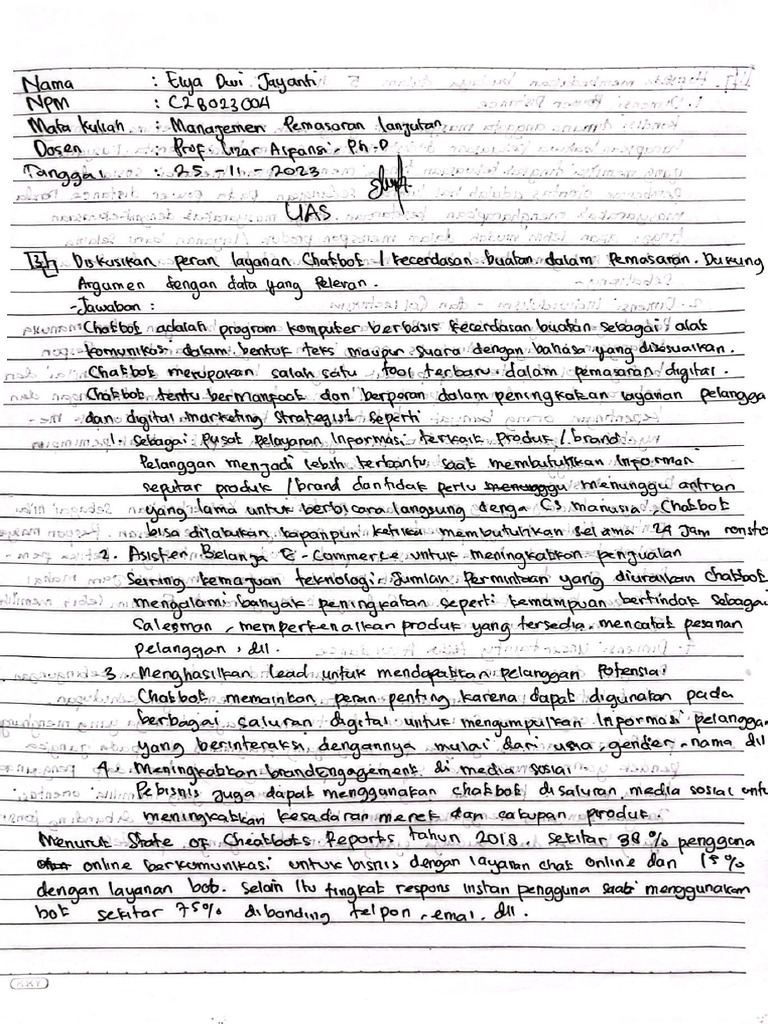 Nama : Elya Dwi Jayanti
NPM : C2B023004
Mata Kuliah : Manajemen Pemasaran Lanjutan
Dosen : Prof. Lizar Alfansi, Ph.D
Tanggal : 25 - 11 - 2023
UAS
3. Diskusikan peran layanan Chatbot / kecerdasan buatan dalam Pemasaran. Dukung
Argumen dengan data yang Relevan.
- Jawaban :
Chatbot adalah program komputer berbasis kecerdasan buatan sebagai alat
komunikasi dalam bentuk teks maupun suara dengan bahasa yang disesuaikan.
Chatbot merupakan salah satu tool terbaru dalam pemasaran digital.
Chatbot tentu bermanfaat dan berperan dalam peningkatan layanan pelangga
dan digital marketing strategist seperti
1. sebagai pusat pelayanan Informasi terkait produk / brand
Pelanggan menjadi lebih terbantu saat membutuhkan Informasi
seputar produk / brand dan tidak perlu menunggu antrian
yang lama untuk berbicara langsung denga CS manusia. Chatbot
bisa dilakukan kapanpun ketika membutuhkan selama 24 Jam nonsto
2. Asisten Belanja E-Commerce untuk meningkatkan penjualan
Seiring kemajuan teknologi. Jumlah Permintaan yang diuraikan chatbot
mengalami banyak peningkatan seperti kemampuan bertindak sebagai
Salesman, memperkenalkan produk yang tersedia, mencatat pesanan
pelanggan, dll.
3. Menghasilkan lead untuk mendapatkan pelanggan Potensial
Chatbot memainkan peran penting karena dapat digunakan pada
berbagai saluran digital untuk mengumpulkan Informasi pelangga
yang berinteraksi dengannya mulai dari usia, gender, nama dll
4. Meningkatkan brand engagement di media sosial
Pebisnis juga dapat menggunakan chatbot disaluran media sosial untu
meningkatkan kesadaran merek dan cakupan produk.
Menurut State of Cheatbots Reports tahun 2018. sekitar 38 % pengguna
online berkomunikasi untuk bisnis dengan layanan chat online dan 15 %
dengan layanan bob. Selain Itu tingkat respons instan pengguna saat menggunakan
bot sekitar 75% dibanding telpon, emai, dll.